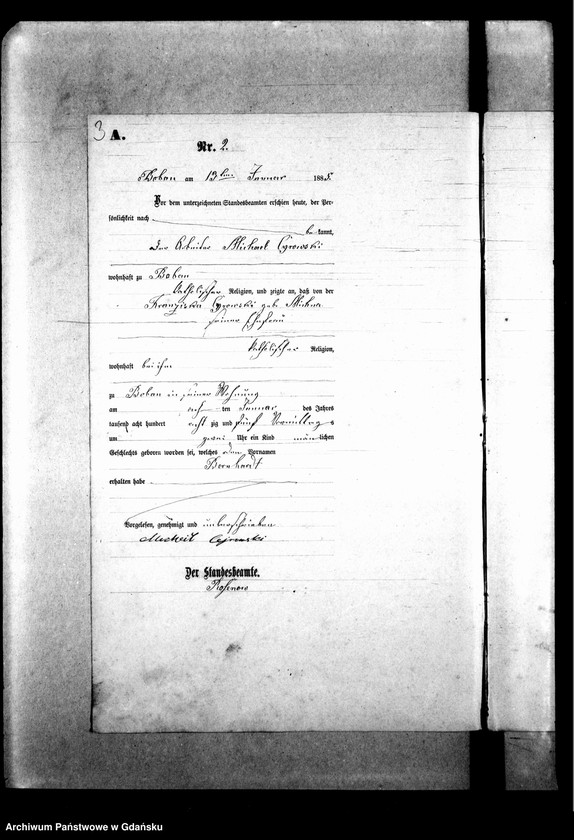 3 A.
Nr. 2.
Boban am 13ten Januar 1885.
Vor dem unterzeichneten Standesbeamten erschien heute, der Per-
sönlichkeit nach
bekannt,
der Arbeiter Michael Cyrowski
wohnhaft zu Boban
katholischer Religion, und zeigte an, daß von der
Franziska Cyrowski geb.
seiner Ehefrau
katholischer Religion,
wohnhaft bei ihm
zu Boban in seiner Wohnung
am ten Januar des Jahres
tausend acht hundert acht zig und fünf Vormittags
um zwei Uhr ein Kind männlichen
Geschlechts geboren worden sei, welches den Vornamen
Bernhardt
erhalten habe
Vorgelesen, genehmigt und unterschrieben
Der Standesbeamte.
Rosenow
Archiwum Państwowe w Gdańsku